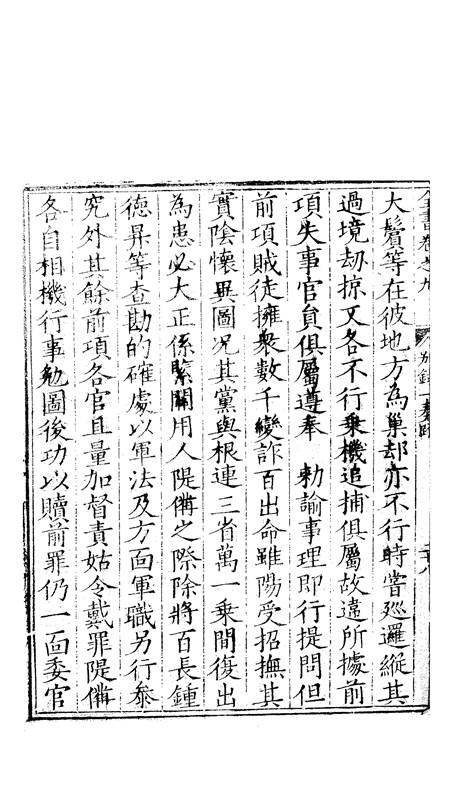 全書卷之九　別錄一奏疏
大鬢等在彼地方為巢却亦不行時嘗廵邏縱其
過境刼掠又各不行乗機追捕俱屬故違所據前
項失事官員俱屬遵奉　勅諭事理即行提問但
前項賊徒擁衆數千變詐百出命雖陽受招撫其
實陰懷異圖况其黨與根連三省萬一乗間復出
為患必大正係緊關用人隄備之際除將百長鍾
德昇等查勘的確處以軍法及方面軍職另行叅
究外其餘前項各官且量加督責姑令戴罪隄備
各自相機行事勉圖後功以贖前罪仍一面委官